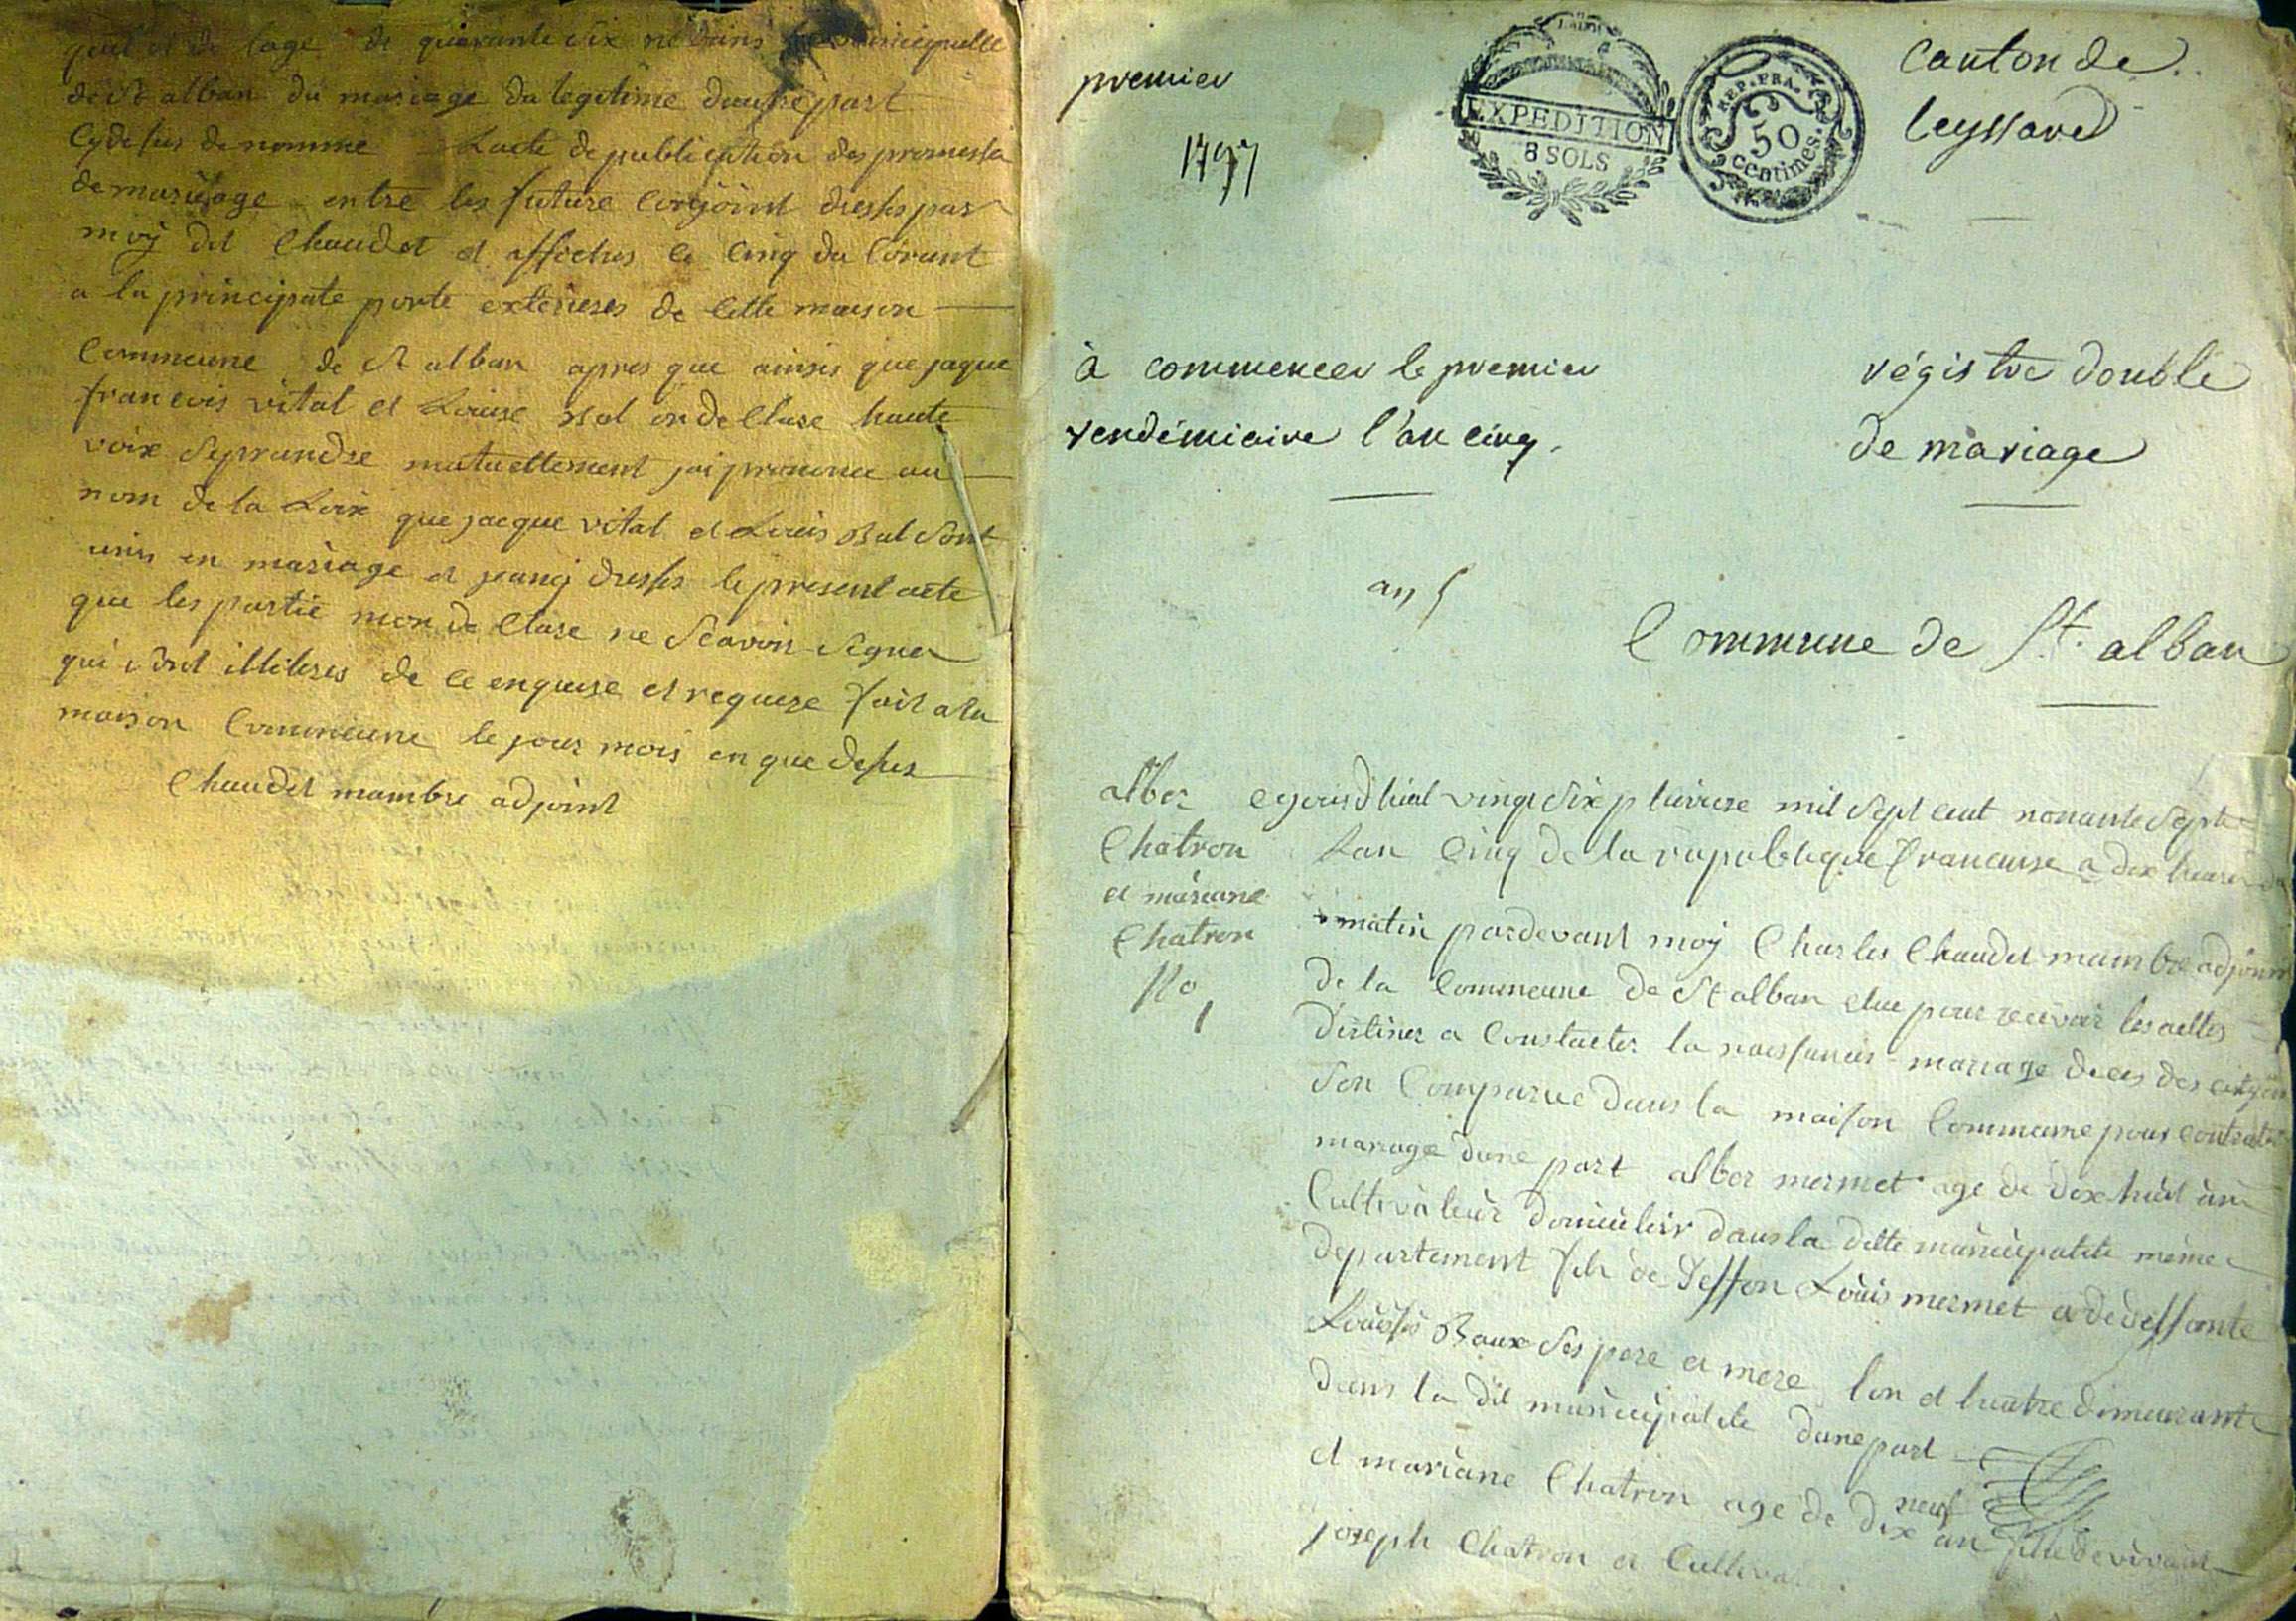 de lage de quarante six né dans
de St alban du mariage du legitime dautre part
Cydesus denomme Lacte de publication des promessa
demariage entre les future Conjoint dresses par
moy dit Chaudet et affiches le Cinq du Corant
a la principate porte exterieres de Cette maison
Commeune de St alban apres que ainsis que jaque
francois vital et Louise Bal on de Clare haute
voix Seprandre mutuellement jai prononce au
nom de la Loix que jacque vital et Louis Bal sont
unis en mariage et jeanij dresses le present acte
que les partie mon de Clare ne Scavoir Signer
qui sont illiteres de ce enquise et requise fait a la
maison Commeune le jour mois en que desus
Chaudet mambre adjoint
premier
1797
EXPEDITION
8 SOLS
REP. FRA.
50
centimes.
Canton de
leyssard
à commencer le premier
vendémiaire l'an cinq.
régistre double
de mariage
an 5
Commune de St. alban
alber
Chatron
et mariane
Chatron
No
1
ejourdhial vingt Six pluviose mil Sept cent nonante Septe
Lan Cinq de la republique francause a dix heure
matin pardevant moy Charles Chaudet mambre adjoint
de la Commeune de St alban elue pour recevoir les acttes
destines a Constacter la naissances mariage deces des citoyen
Son Comparue dans la maison Commeune pour contracter
mariage dune part alber mermet age de dix huit ans
Cultivateur domicilier dans la ditte municipatité meme
departement fils de deffon Louis mermet a de deffante
Louisse Baux Ses pere et mere lon et luatre dimeurante
dans la dit municipalite dune part
et mariane Chatron age de dix neuf an fille de vivant
joseph Chatron et Cultivateur